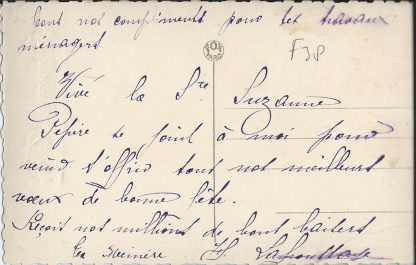 Tous nos compliments pour tes travaux
ménagers
FOX
PARIS
F3P
Vive la Ste Suzanne
Pépère se joint à moi pour
venir t'offrir tous nos meilleurs
vœux de bonne fête.
Reçois nos millions de bons baisers
Ta